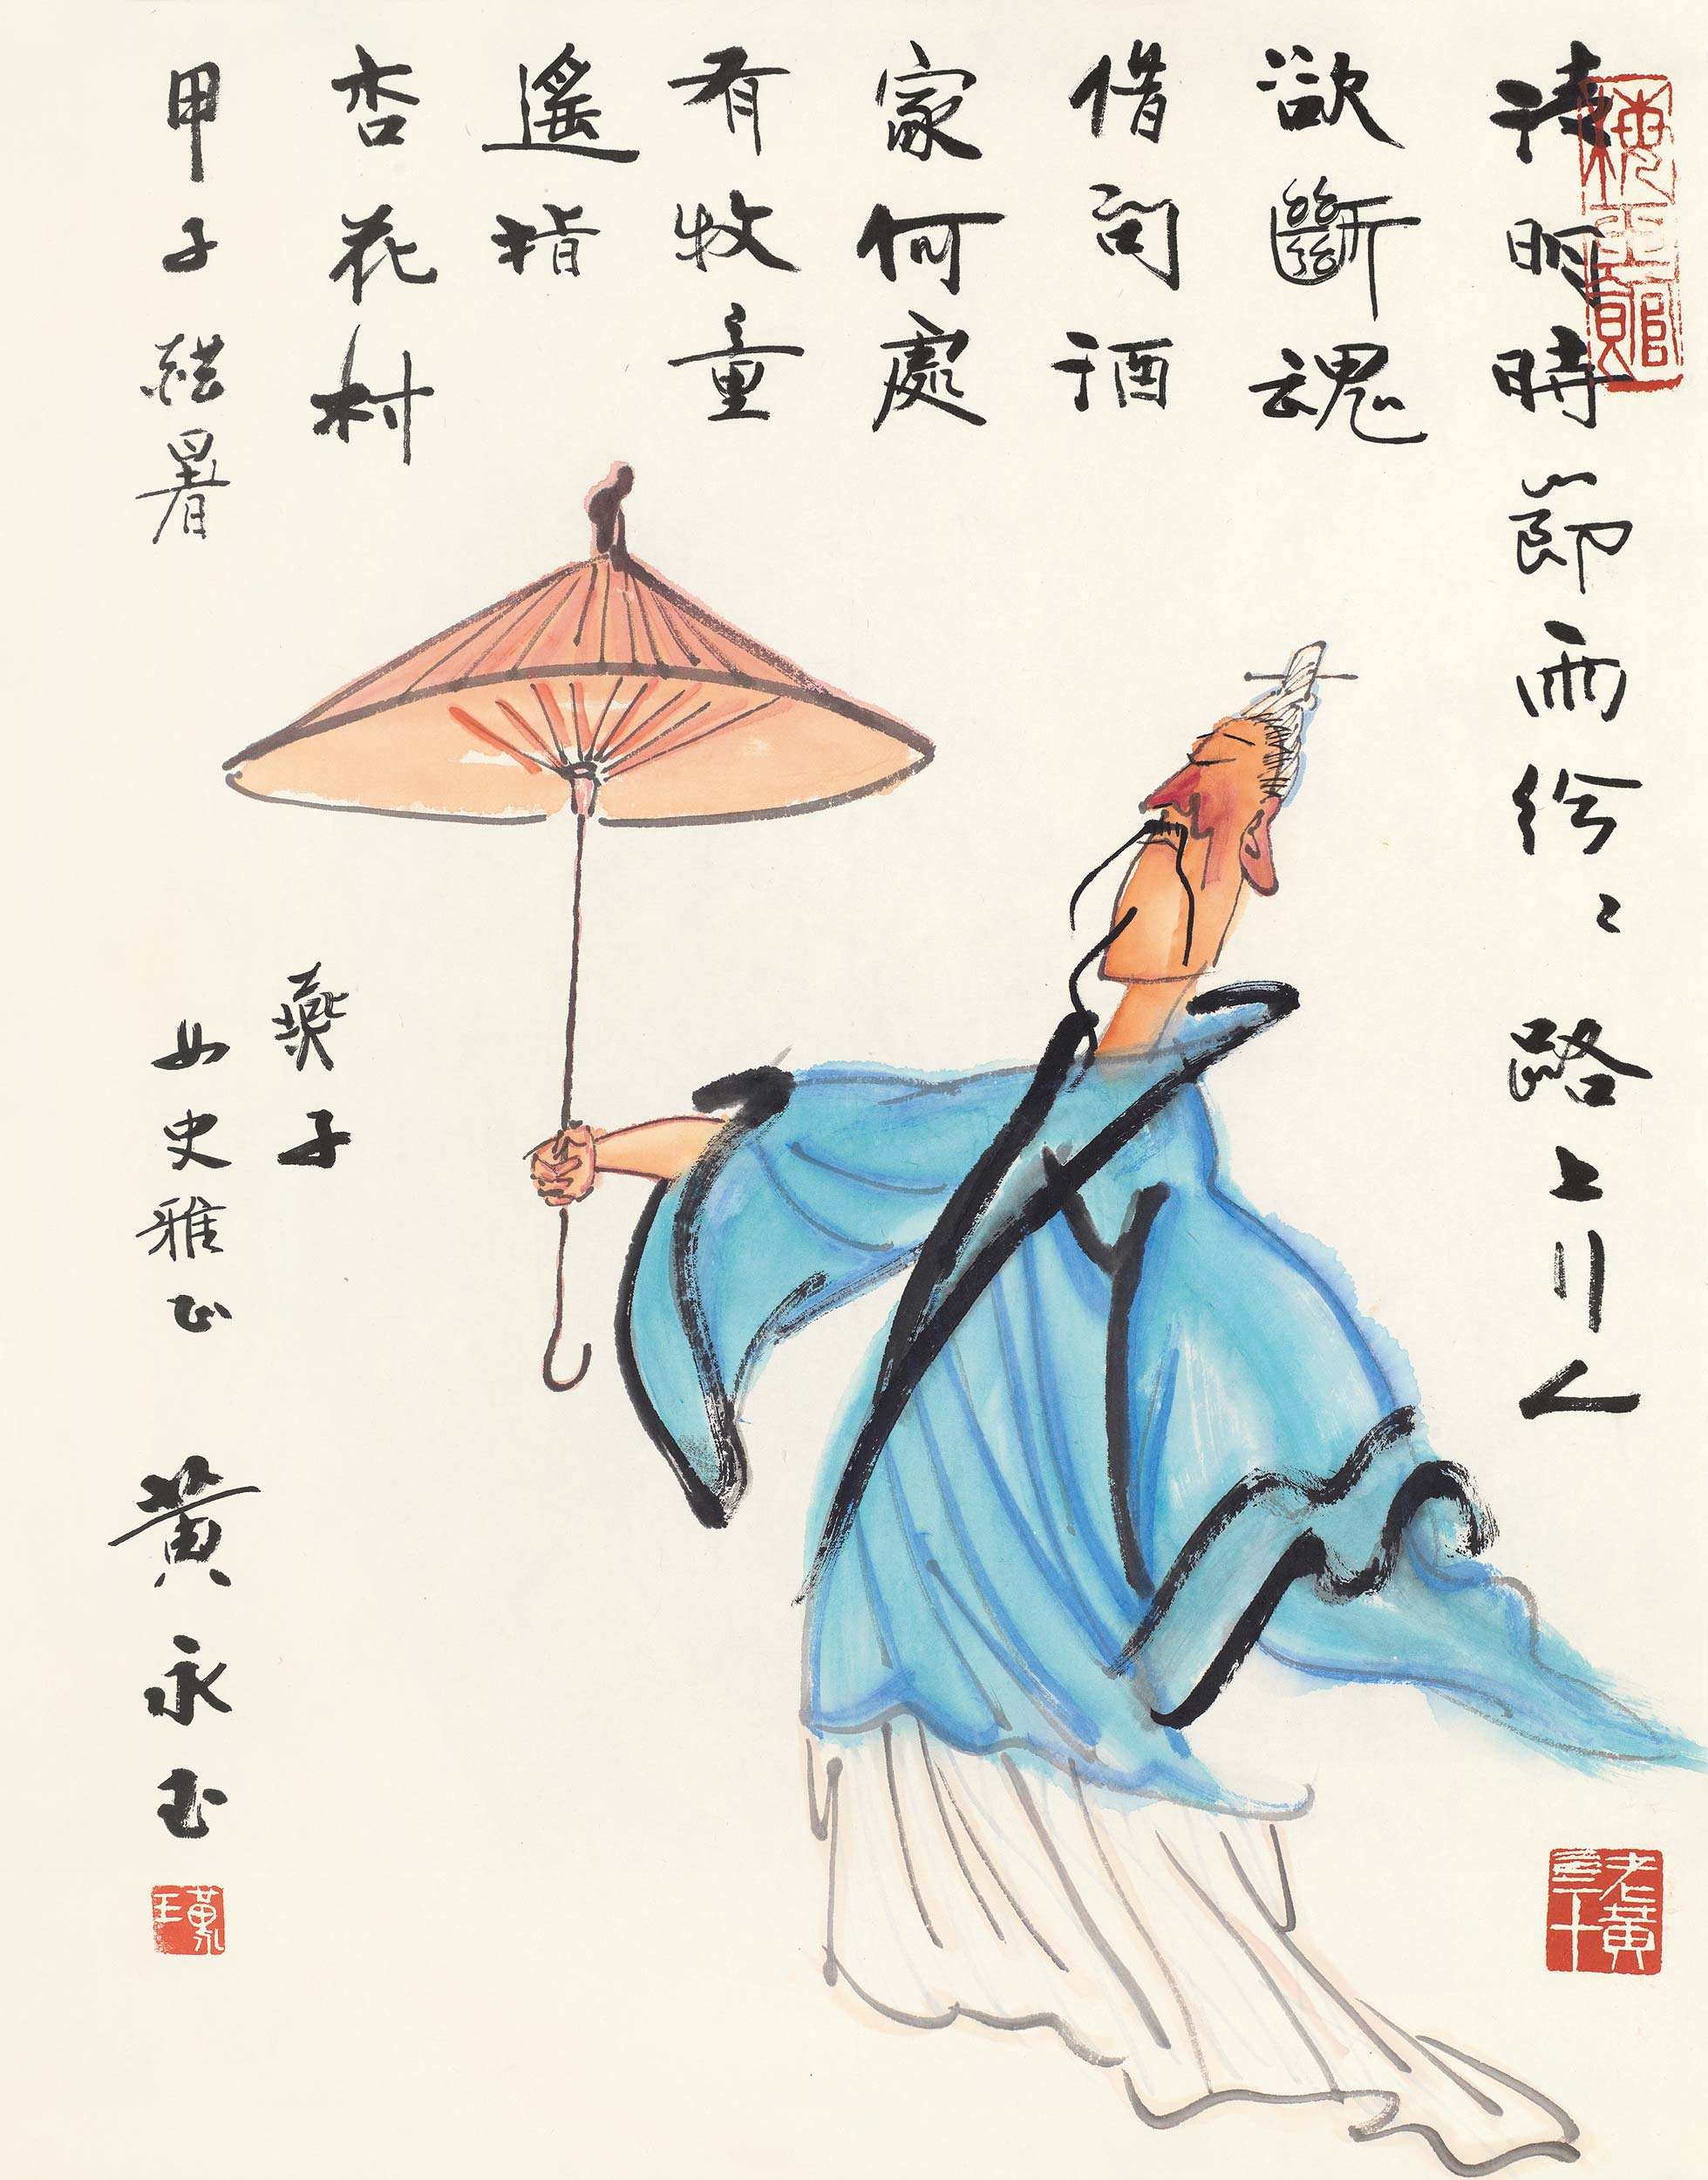 清明時節雨紛〻路上行人
欲斷魂
借問酒
家何處
有牧童
遙指
杏花村
甲子 暑
燕子
女史雅正 黃永玉
老黃